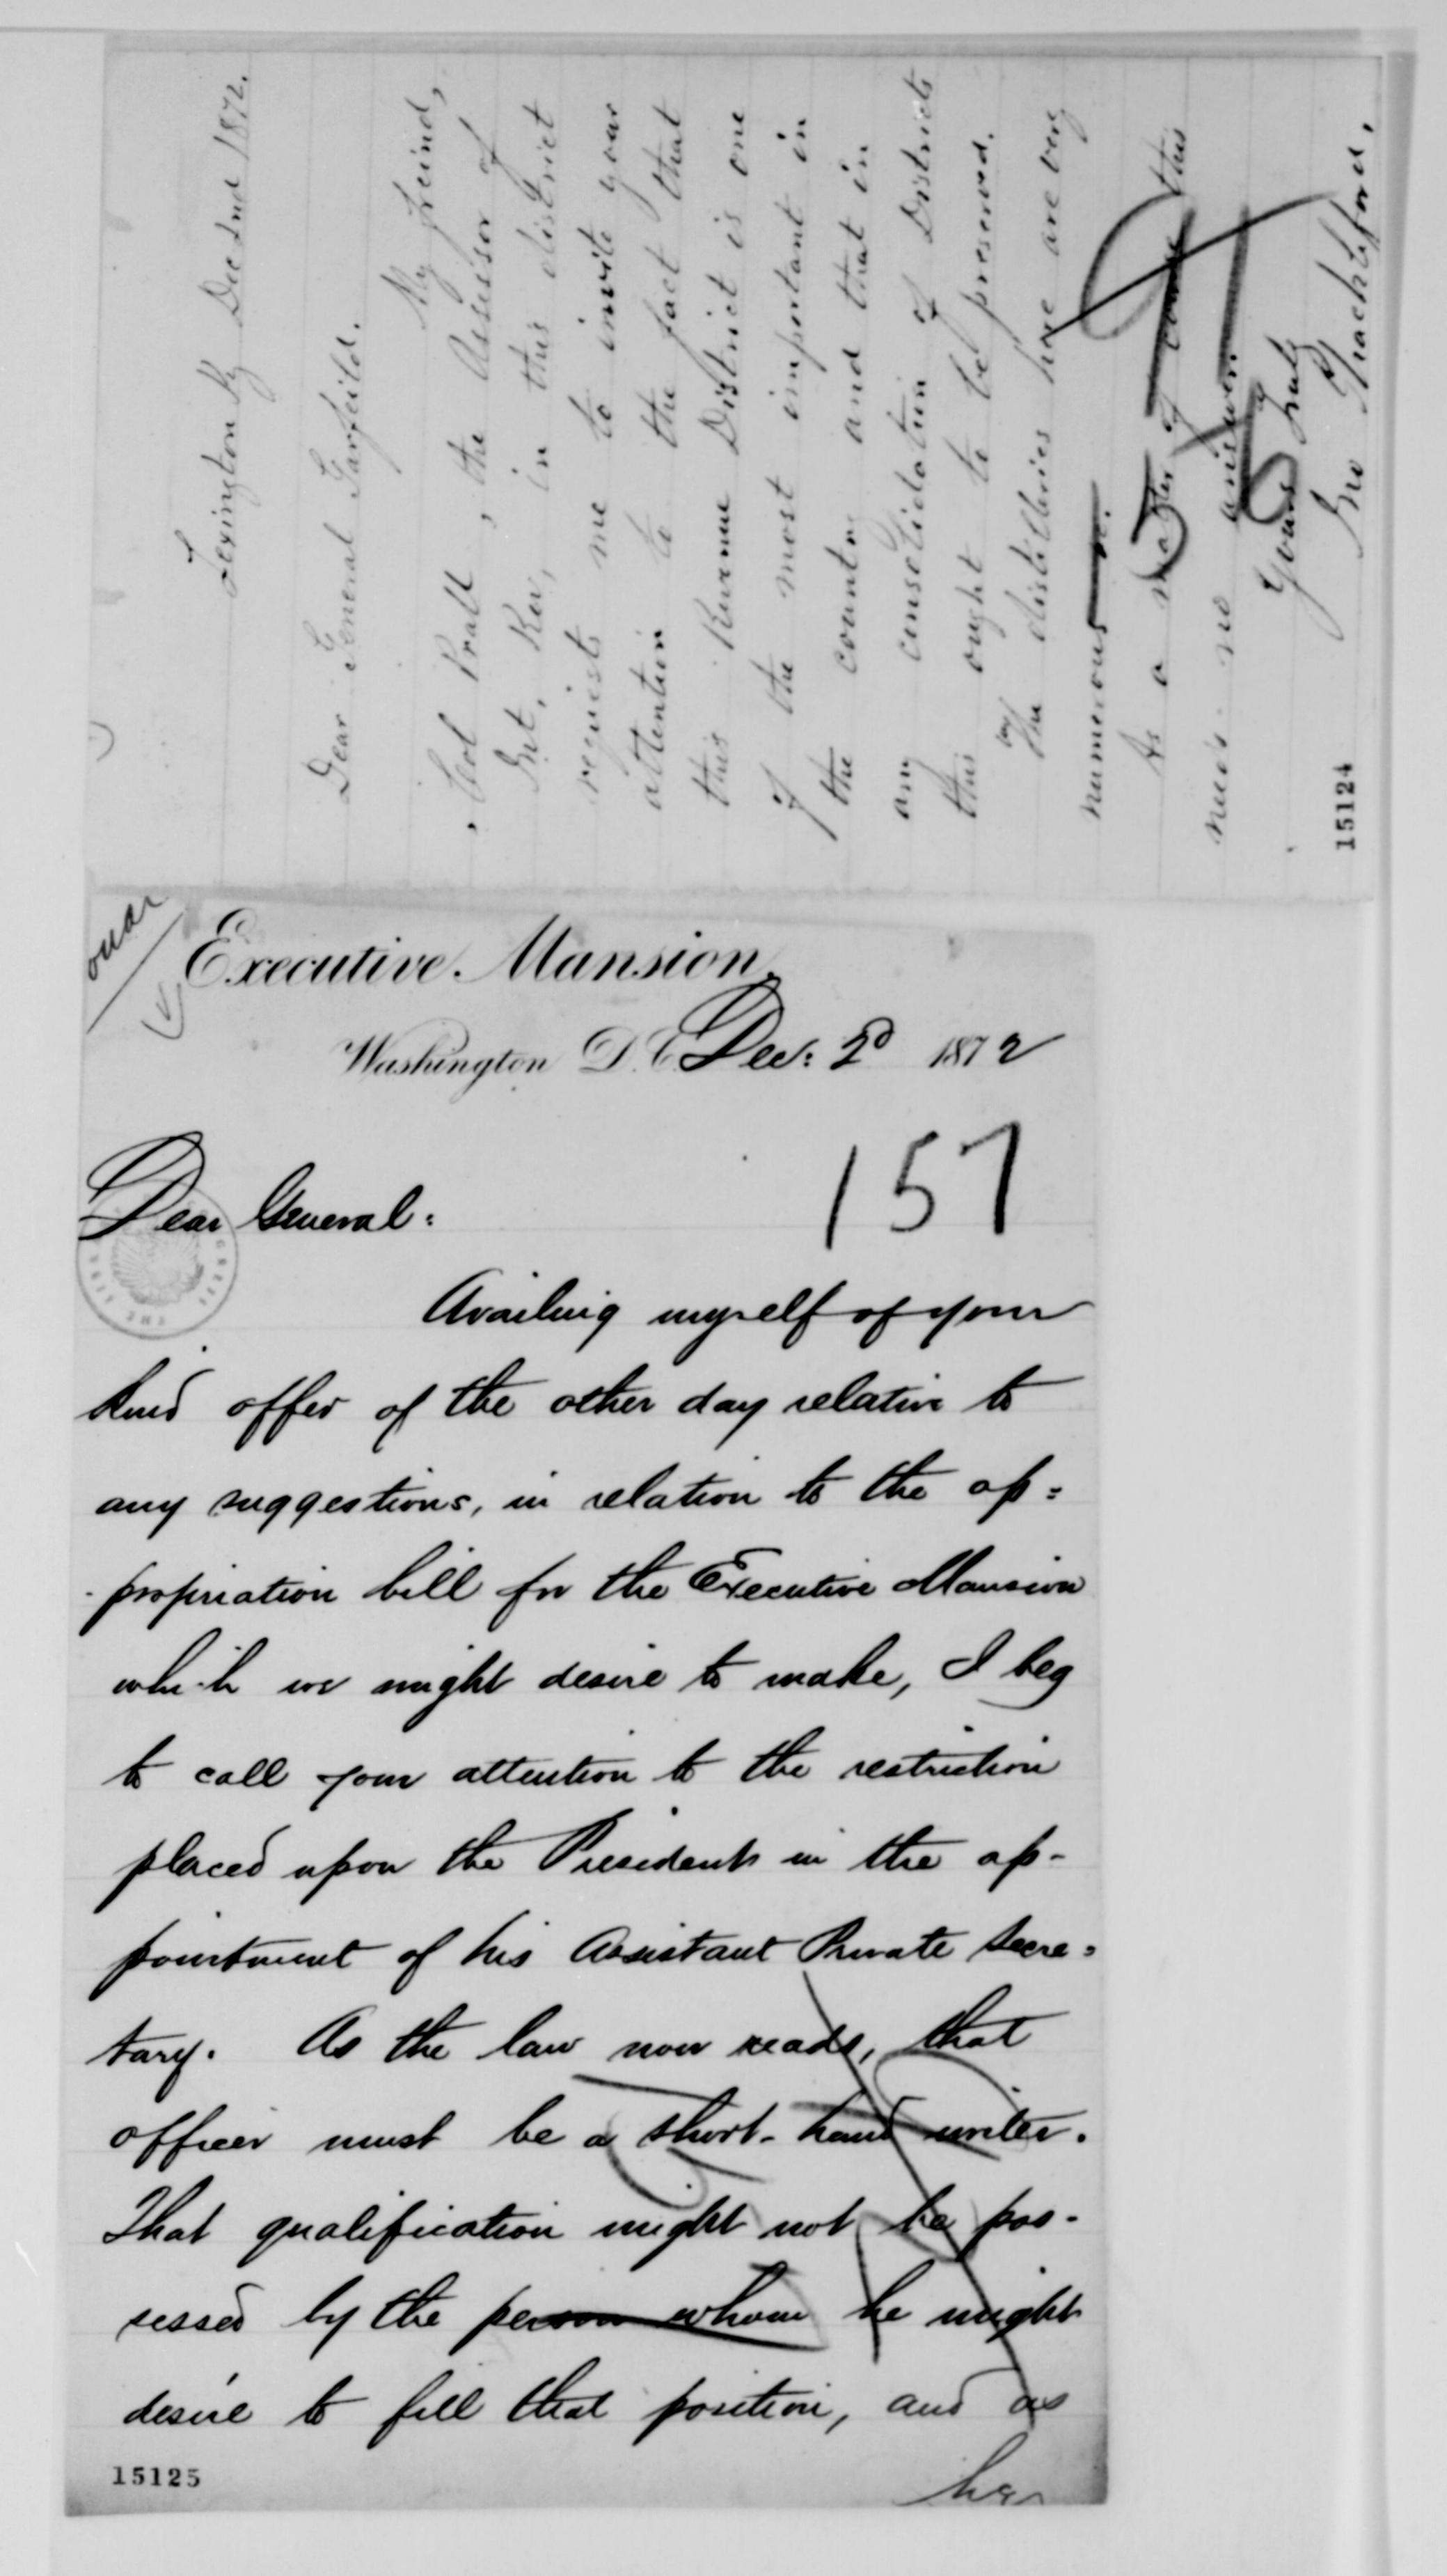 Lexington Ky Dec 2nd 1872.
Dear General Garfeild.
My freind,
Col Pratt, the Assessor of
Int. Rev, in this district
requests me to invite your
attention to the fact that
this Revenue District is one
of the most important in
the country and that in
any consolidation of Districts
this ought to be preserved.
The distilleries here are very
numerous &c.
As a matter of course this
needs no answer.
Yours Truly
15124
over
Executive Mansion,
Washington D.C. Dec: 2d 1872
157
Dear General:
Availing myself of your
kind offer of the other day relative to
any suggestions, in relation to the ap=
propriation bill for the Executive Mansion
which we might desire to make, I beg
to call your attention to the restriction
placed upon the President in the ap-
pointment of his Assistant Private Secre=
tary. As the law now reads, that
officer must be a short-hand writer.
That qualification might not be pos-
sessed by the person whom he might
desire to fill that position, and as
he
15125